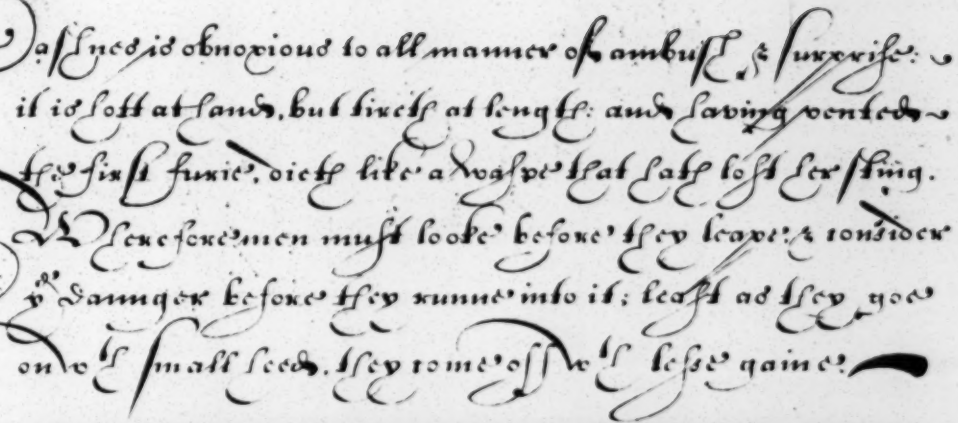 ashnes is obnoxious to all manner of ambush & surprise:
it is hott at hand, but tireth at length: and having vented
the first furie, dieth like a waspe that hath lost her sting.
Wherefore men must looke before they leape: & consider
yᵉ daunger before they runne into it; least as they goe
on wᵗʰ small heed, they come off wᵗʰ lesse gaine.